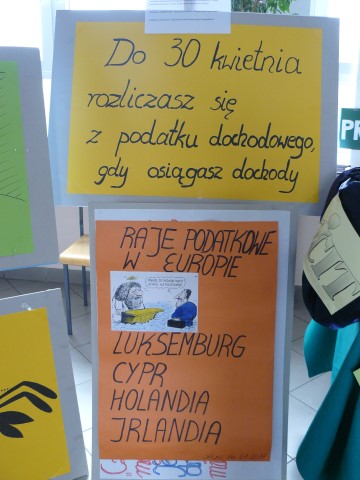 Do 30 kwietnia
rozliczasz się
z podatku dochodowego,
gdy osiągasz dochody
RAJE PODATKOWE
W EUROPIE
LUKSEMBURG
CYPR
HOLANDIA
IRLANDIA
PR